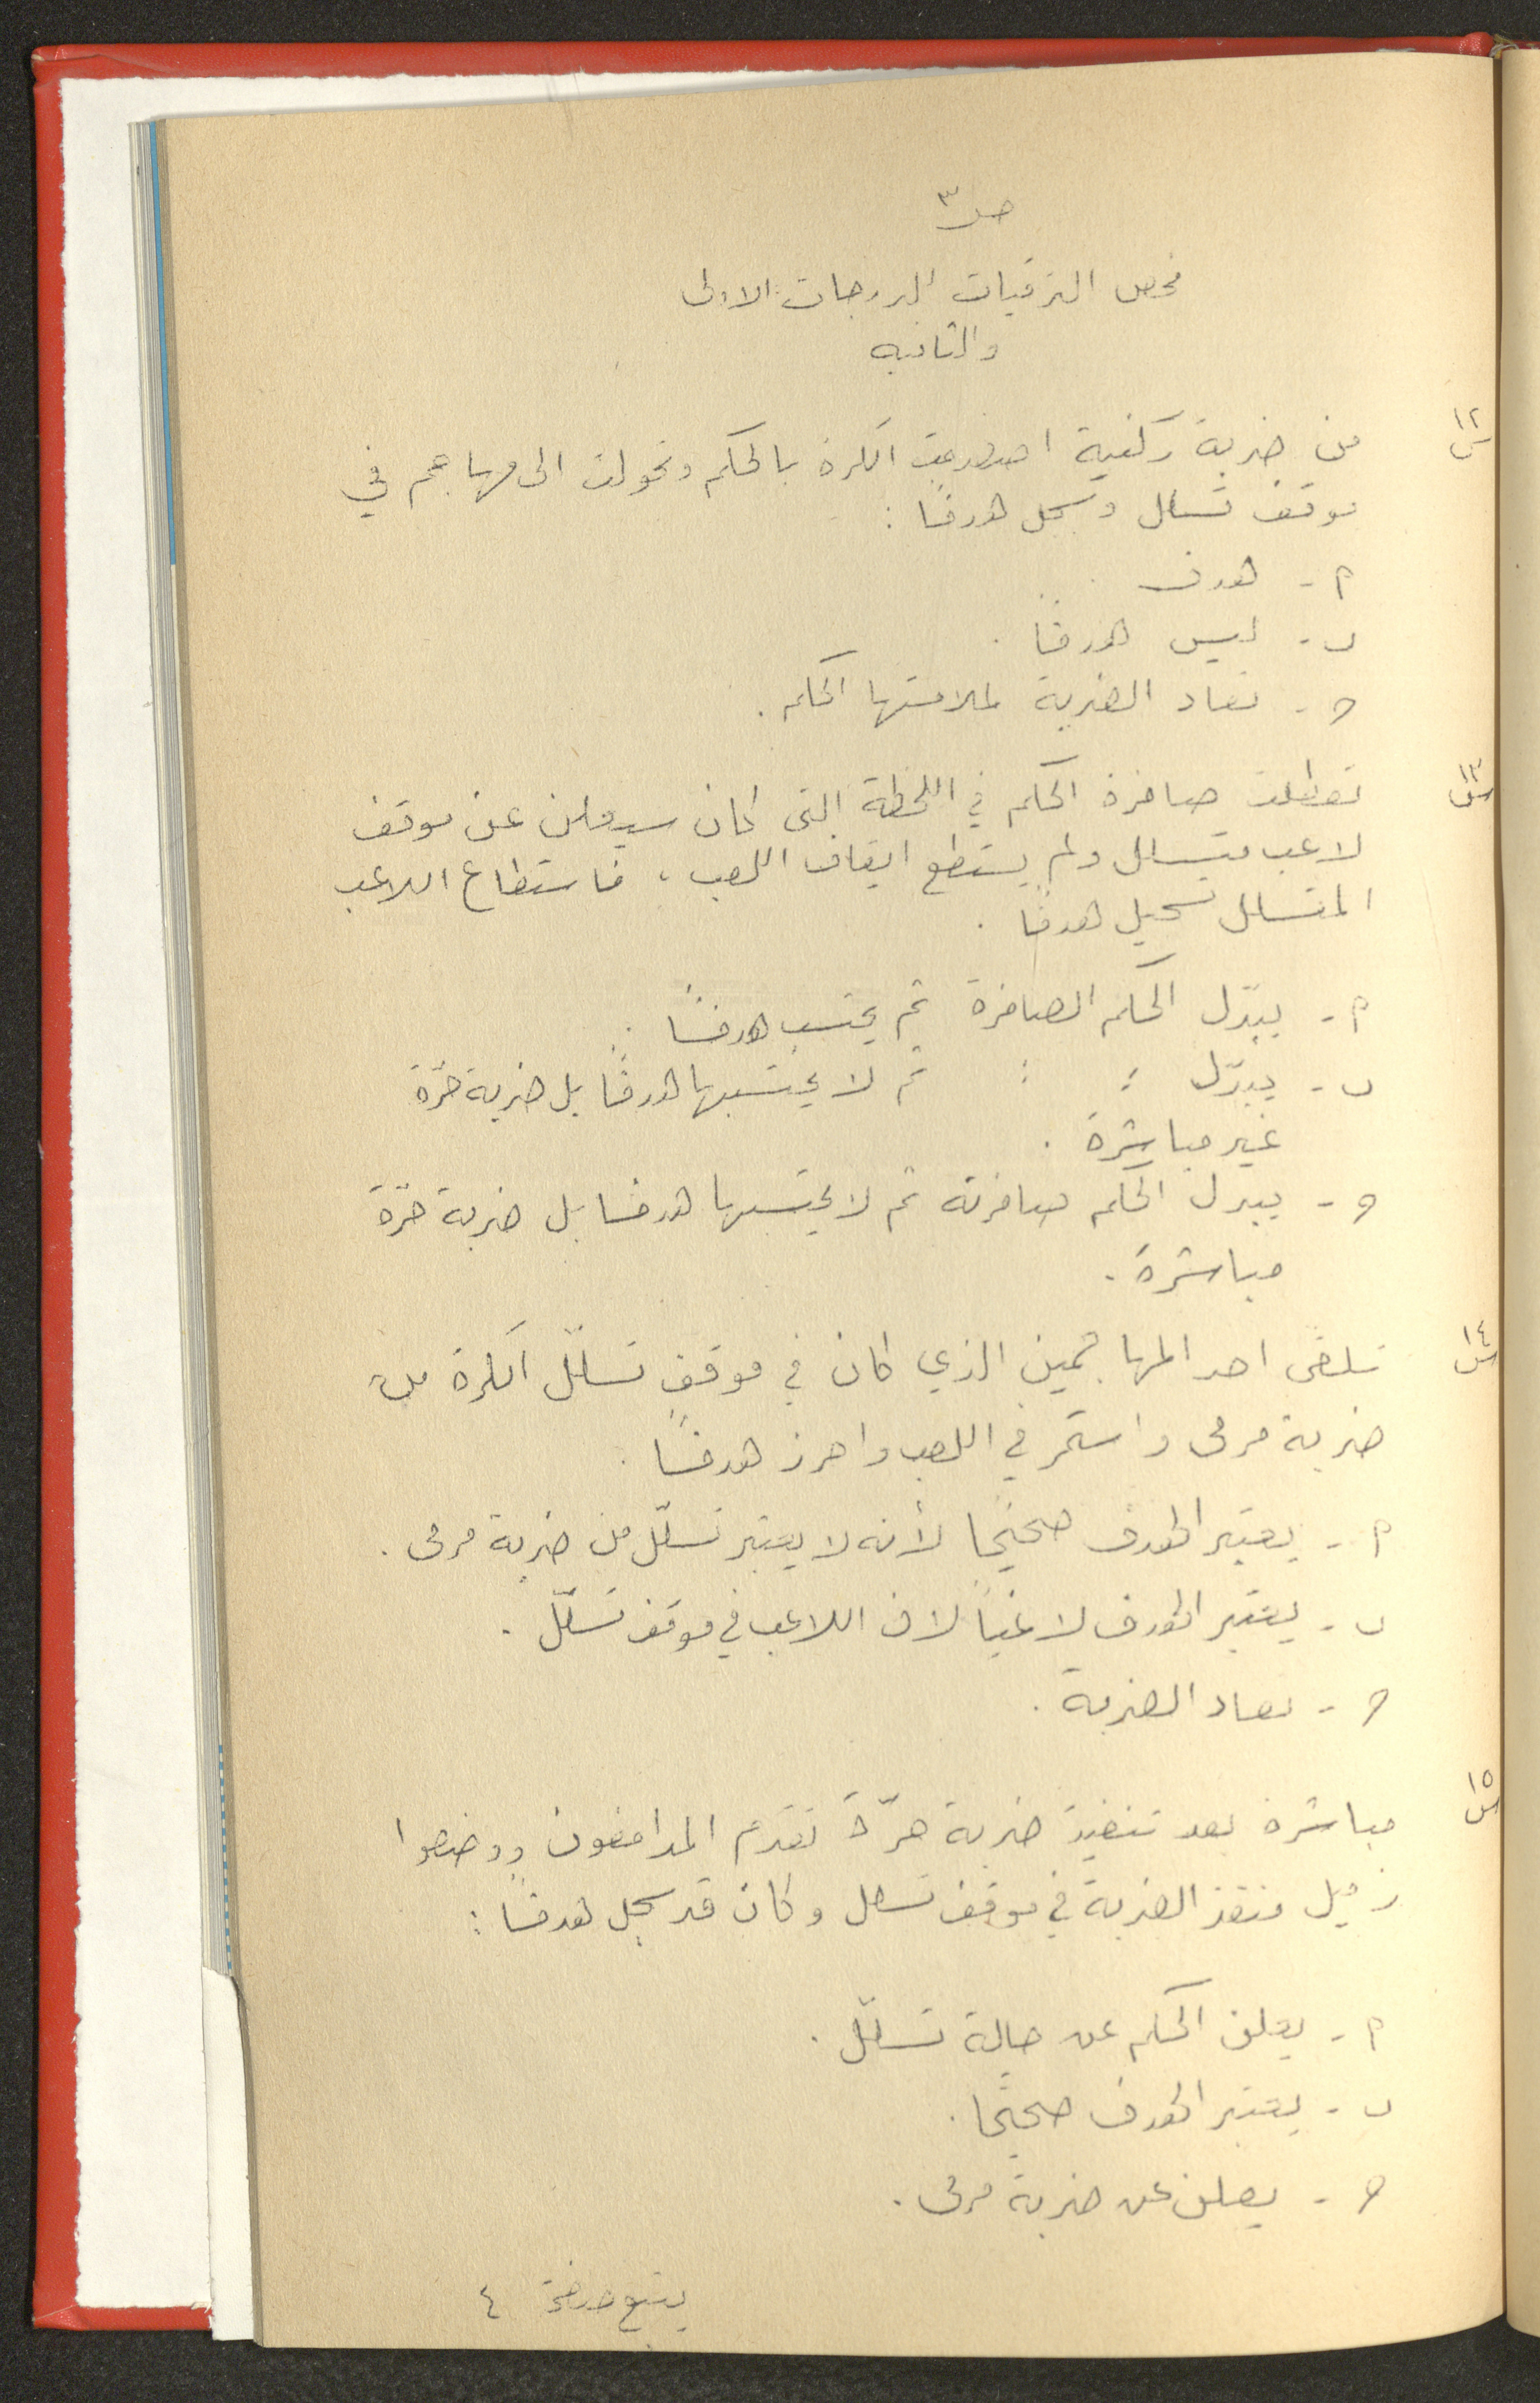 ص ٣
فحص الترقيات للدرجات الاولى
والثانية
س١٢ من ضربة ركنية اصطدمت الكرة بالحكم وتحولت الى مهاجم في
موقف تسلل وسجل هدفًا :
أ - هدف .
ب - ليس هدفًا .
ج - تعاد الضربة لملامستها الحكم .
س١٣ تعطلت صافرة الحكم في اللحظة التي كان سيعلن عن موقف
لاعب متسلل ولم يستطع ايقاف اللعب ، فاستطاع اللاعب
المتسلل تسجيل هدفًا .
أ - يبدّل الحكم الصافرة ثم يحتسب هدفًا .
ب - يبدّل : : ثم لا يحتسبها هدفًا بل ضربة حرّة
غير مباشرة .
ج - يبدل الحكم صافرته ثم لا يحتسبها هدفًا بل ضربة حرّة
مباشرة .
س١٤ تلقى احد المهاجمين الذي كان في موقف تسلّل الكرة من
ضربة مرمى واستمر في اللعب واحرز هدفًا .
أ - يعتبر الهدف صحيحًا لأنه لا يعتبر تسلّل من ضربة مرمى .
ب - يعتبر الهدف لاغيًا لان اللاعب في موقف تسلّل .
ج - تعاد الضربة .
س١٥ مباشرة بعد تنفيذ ضربة حرّة تقدم المدافعون ووضعوا
زميل منفذ الضربة في موقف تسلل وكان قد سجل هدفًا :
أ - يعلن الحكم عن حالة تسلّل .
ب - يعتبر الهدف صحيحًا .
ج - يعلن عن ضربة مرمى .
يتبع صفحة ٤